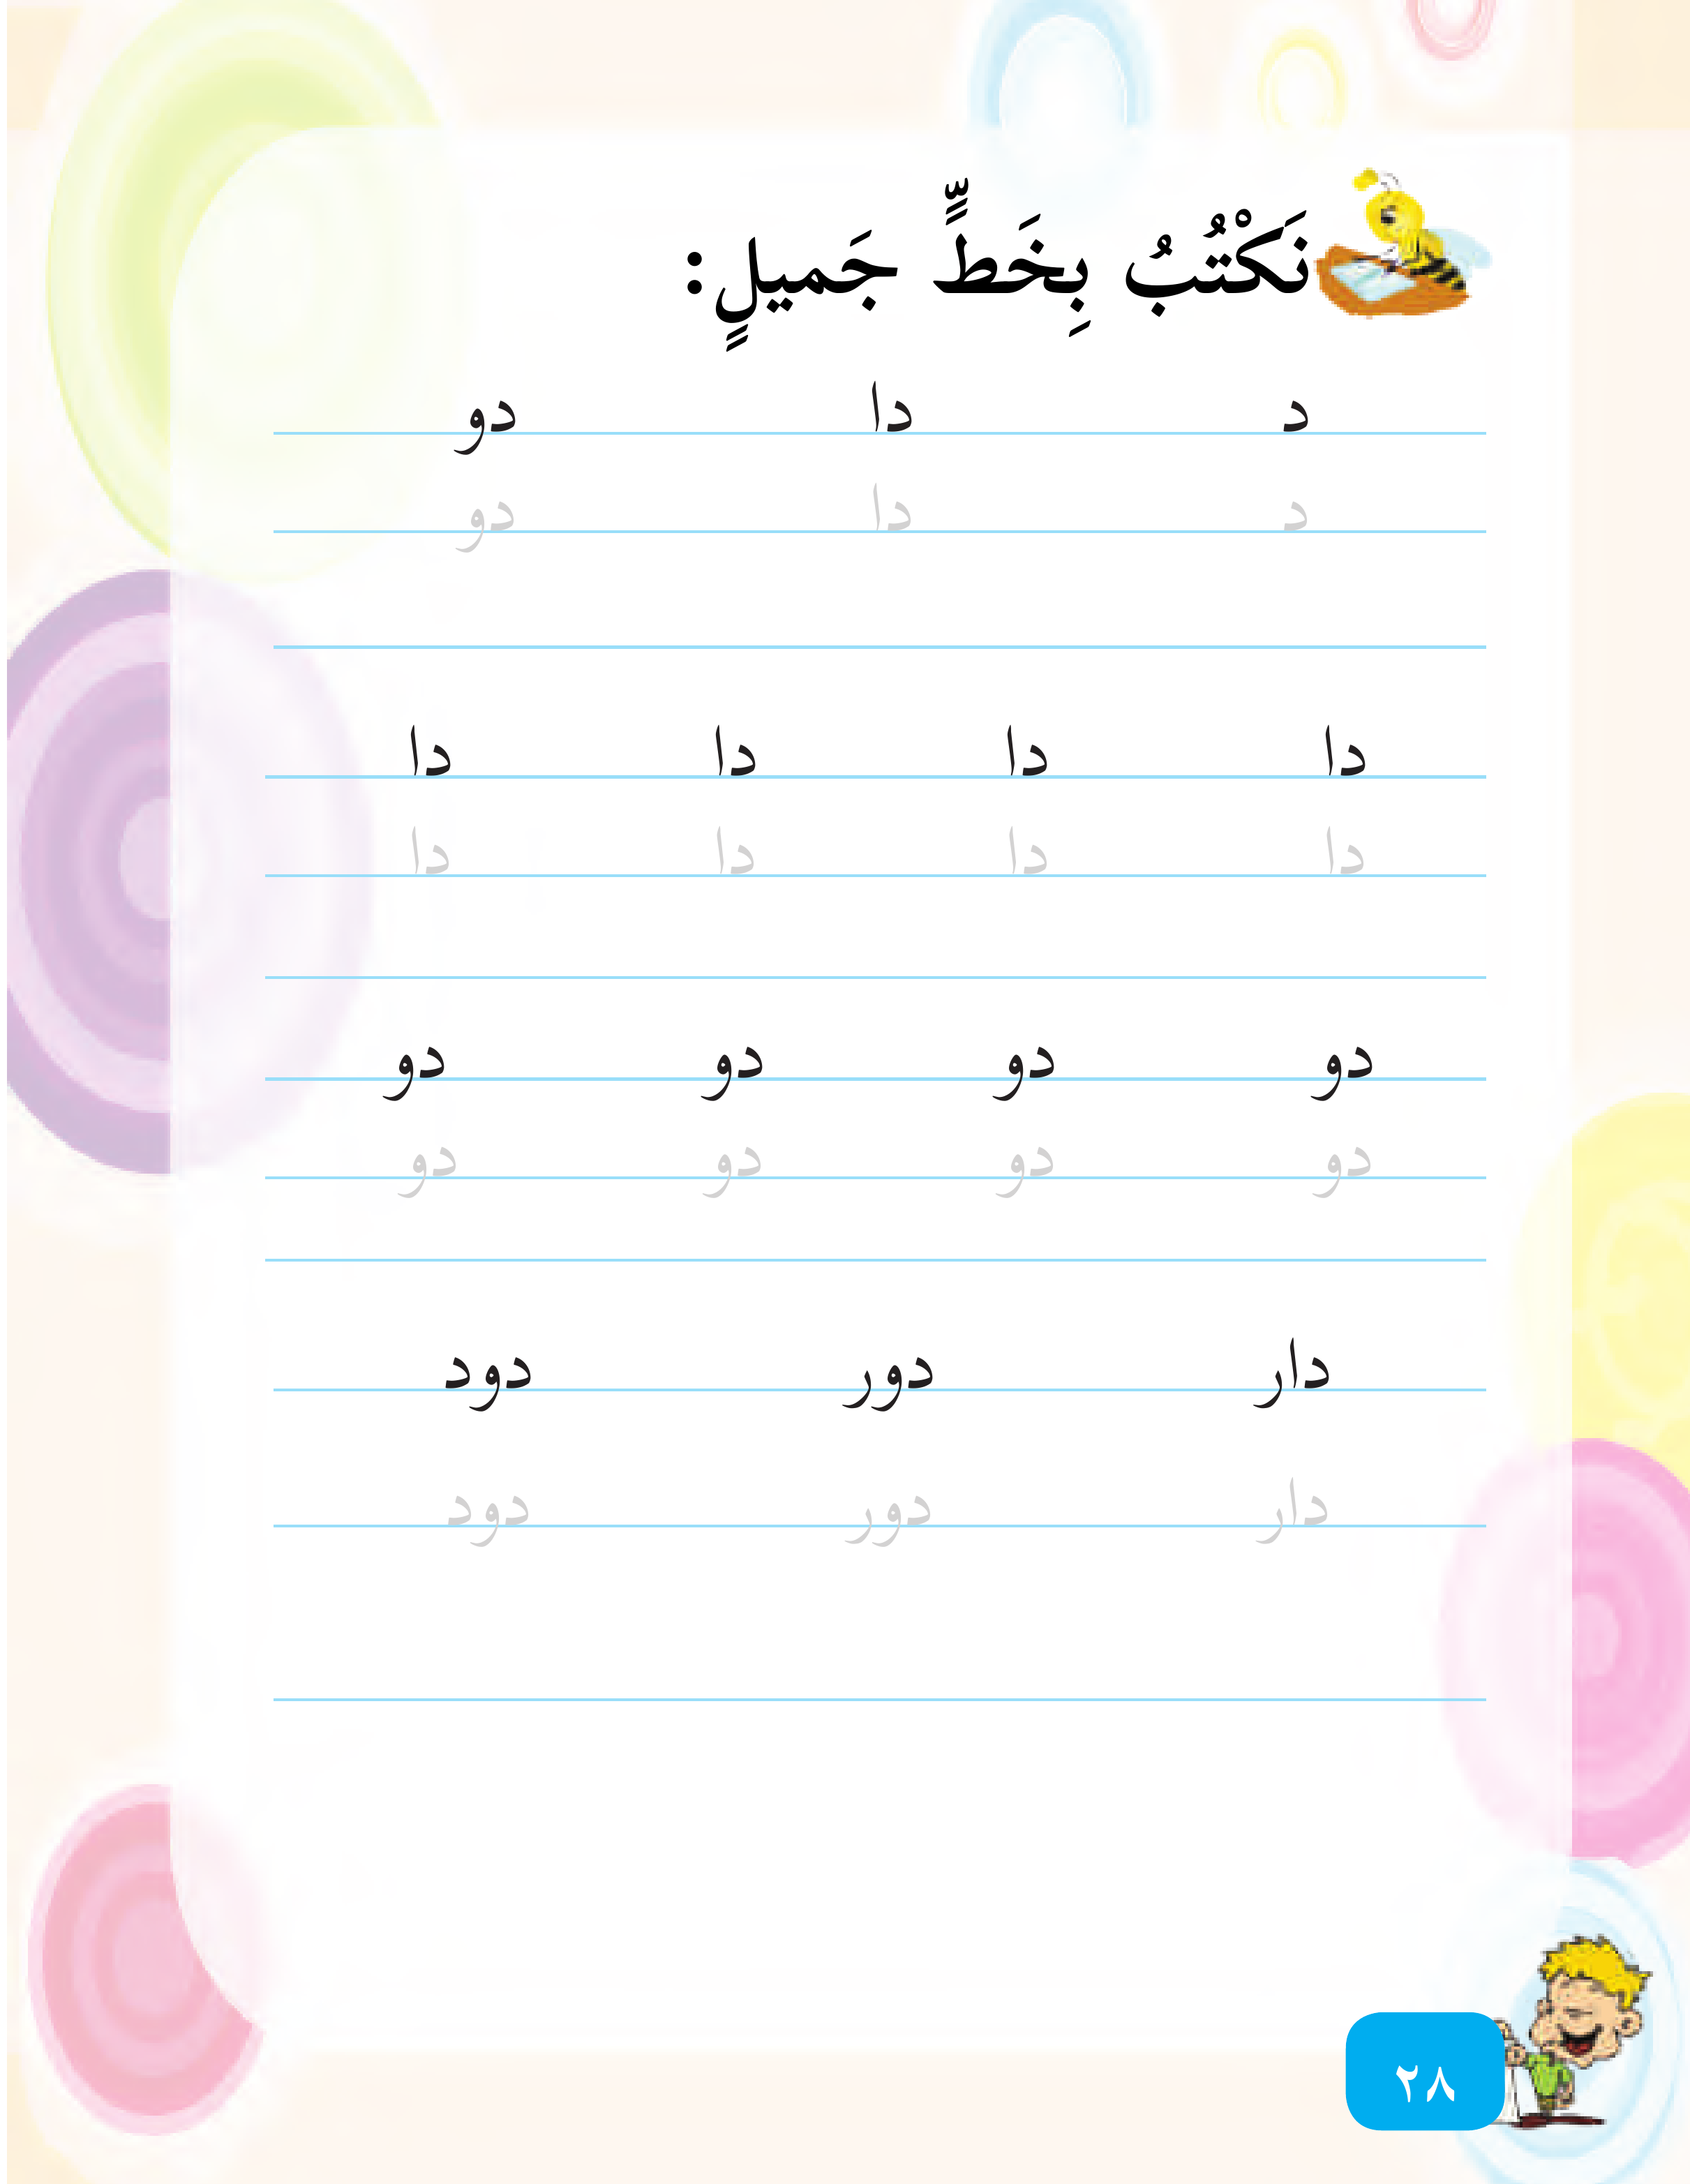 نَكْتُبُ بِخَطٍّ جَميلٍ:
د دا دو
د دا دو
دا دا دا دا
دا دا دا دا
دو دو دو دو
دو دو دو دو
دار دور دود
دار دور دود
٢٨